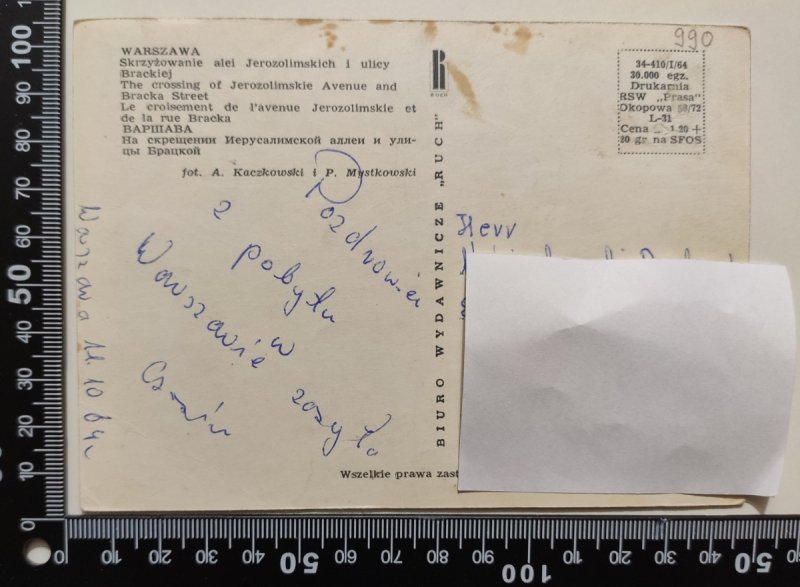 WARSZAWA
Skrzyżowanie alei Jerozolimskich i ulicy
Brackiej
The crossing of Jerozolimskie Avenue and
Bracka Street
Le croisement de l'avenue Jerozolimskie et
de la rue Bracka
ВАРШАВА
На скрещении Иерусалимской аллеи и ули-
цы Брацкой
fot. A. Kaczkowski i P. Mystkowski
RUCH
BIURO WYDAWNICZE „RUCH"
990
34-410/I/64
30.000 egz.
Drukarnia
RSW „Prasa"
Okopowa 58/72
L-31
Cena 1.20 +
20 gr na SFOS
Pozdrowień
z pobytu
w
Warszawie
zasyła
Warszawa 11.10.64r
Herr
Wszelkie prawa zast
100
90
80
70
60
50
40
30
20
10
0
0
10
20
30
40
50
60
70
80
90
100
10
20
30
40
50